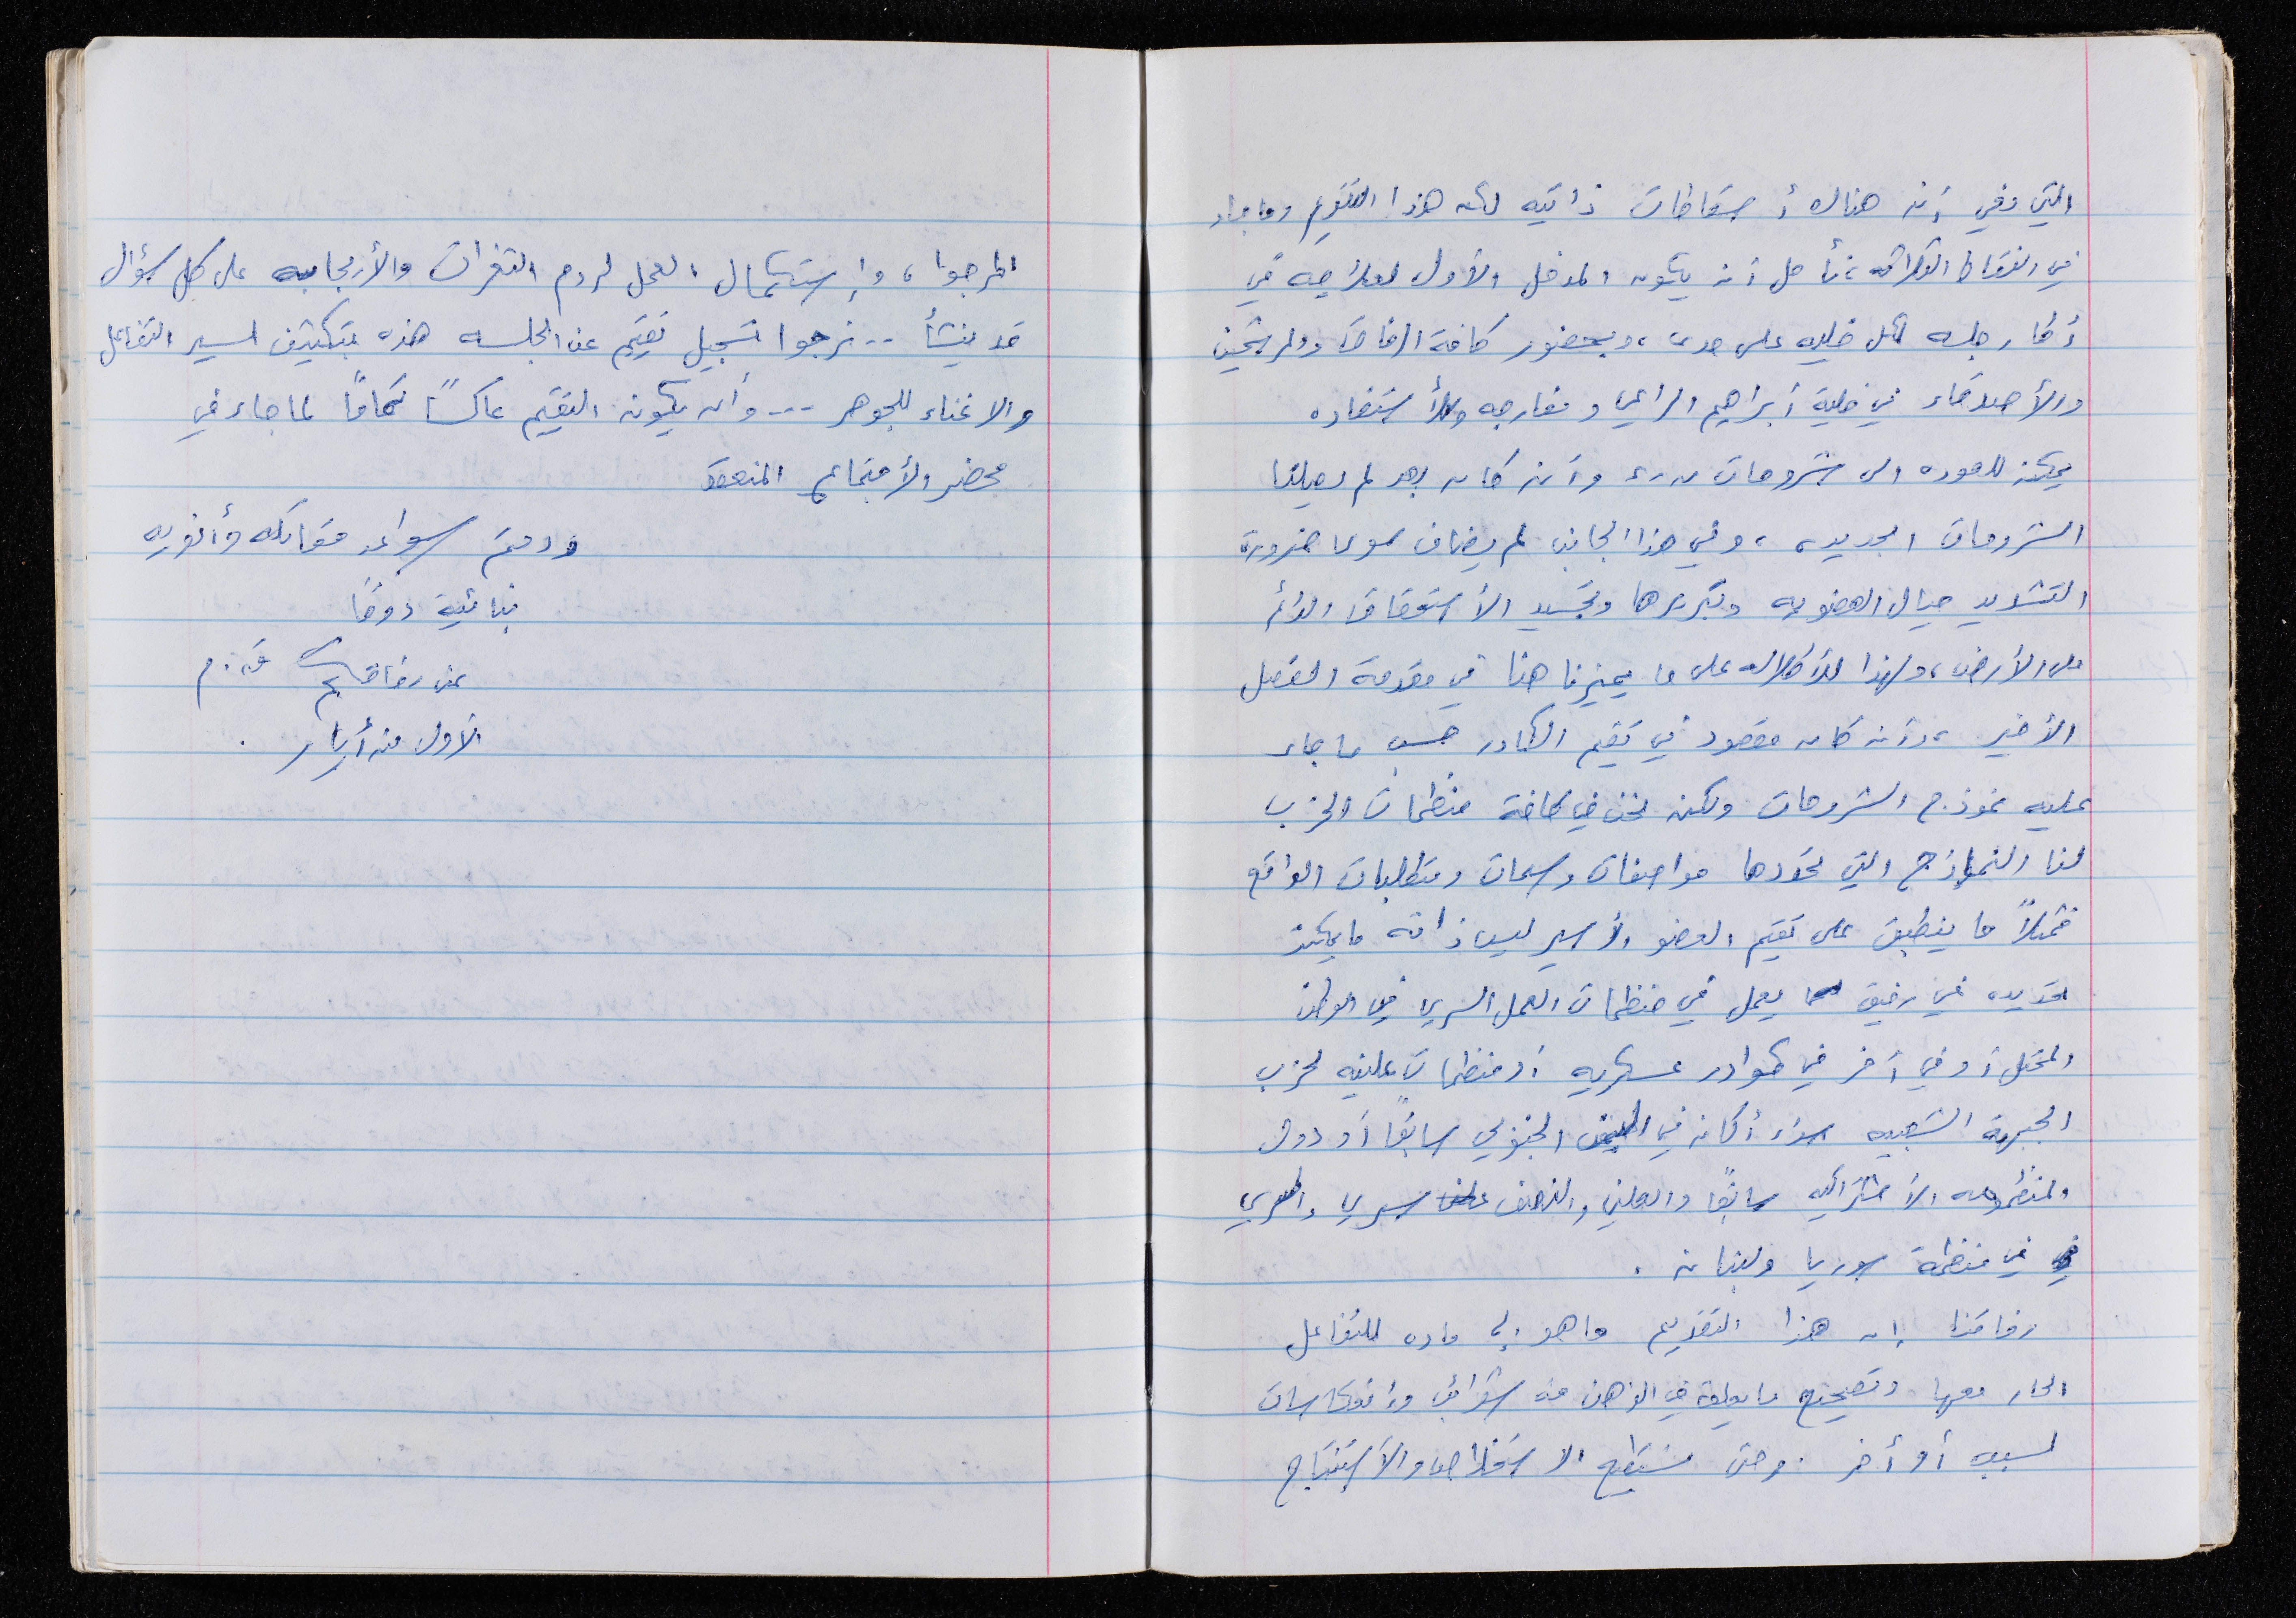 التي وفي إن هناك أسقاطات ذاتيه لكن هذا التقويم وما جاء
في النقاط الثلاثه، نأمل أن يكون المدخل الأول لعلاجه في
أطار جلسه لكل خليه على حدى، وبحضور كافة الرفاق والمرشحين
والأصدقاء في خلية أبراهيم الراعي وخارجه وللأستفاده
يمكن للعوده الى شروحات وأن كان بعد لم يصلنا
الشروحات الجديده، وفي هذا الجانب لم يضاف سوى ضرورة
التشديد حيال العضويه وتبريرها وتجسيد الأستحقاق الدائم
على الأرض، ولهذا على ما يميزنا هنا في مقدمة الفصل
الأخير، وأن كان مقصود في تقيم الكادر حسب ما جاء
عليه نموذج الشروحات ولكن نحن في كافة منظمات الحزب
لنا النماذج التي تحددها مواصفات وسمات ومتطلبات الواقع
فمثلاً ما ينطبق على تقيم العضو الأسير ليس ذاته ما يمكن
تحديده في رفيق يعمل في منظمات العمل السري في الوطن
المحتل أو في آخر في كوادر عسكريه أو منظمات علنيه لحزب
الجبهة الشعبيه سواء أكان في اليمن الجنوبي سابقًا أو دول
المنظومه الأشتراكيه سابقًا والعلني والنصف سري والسري
في منظمة سوريا ولبنان.
رفاقنا إن هذا التقويم ما هو إلى ماده للتفاعل
الحار معها وتصحيح ما يعلق في الذهن من شوائب وأنعكاسات
لسبب أو أخر. وحتى نستطيع الاستخلاص والأستنتاج
المرجوا، وإستكمال العمل لردم الثغرات والأجابه على كل سؤال
قد ينشأ... نرجوا تسجيل تقيم عن الجلسه هذه بتكثيف لسير التفاعل
والاغناء للجوهر ... وأن يكون التقيم عاكسًا تمامًا لما جاء في
محضر الأجتماع المنعقد
ودمتم سواعد مقاتله وأنويه
بنائية دومًا
عن رفاقكم ق.م
الأول من أيار.